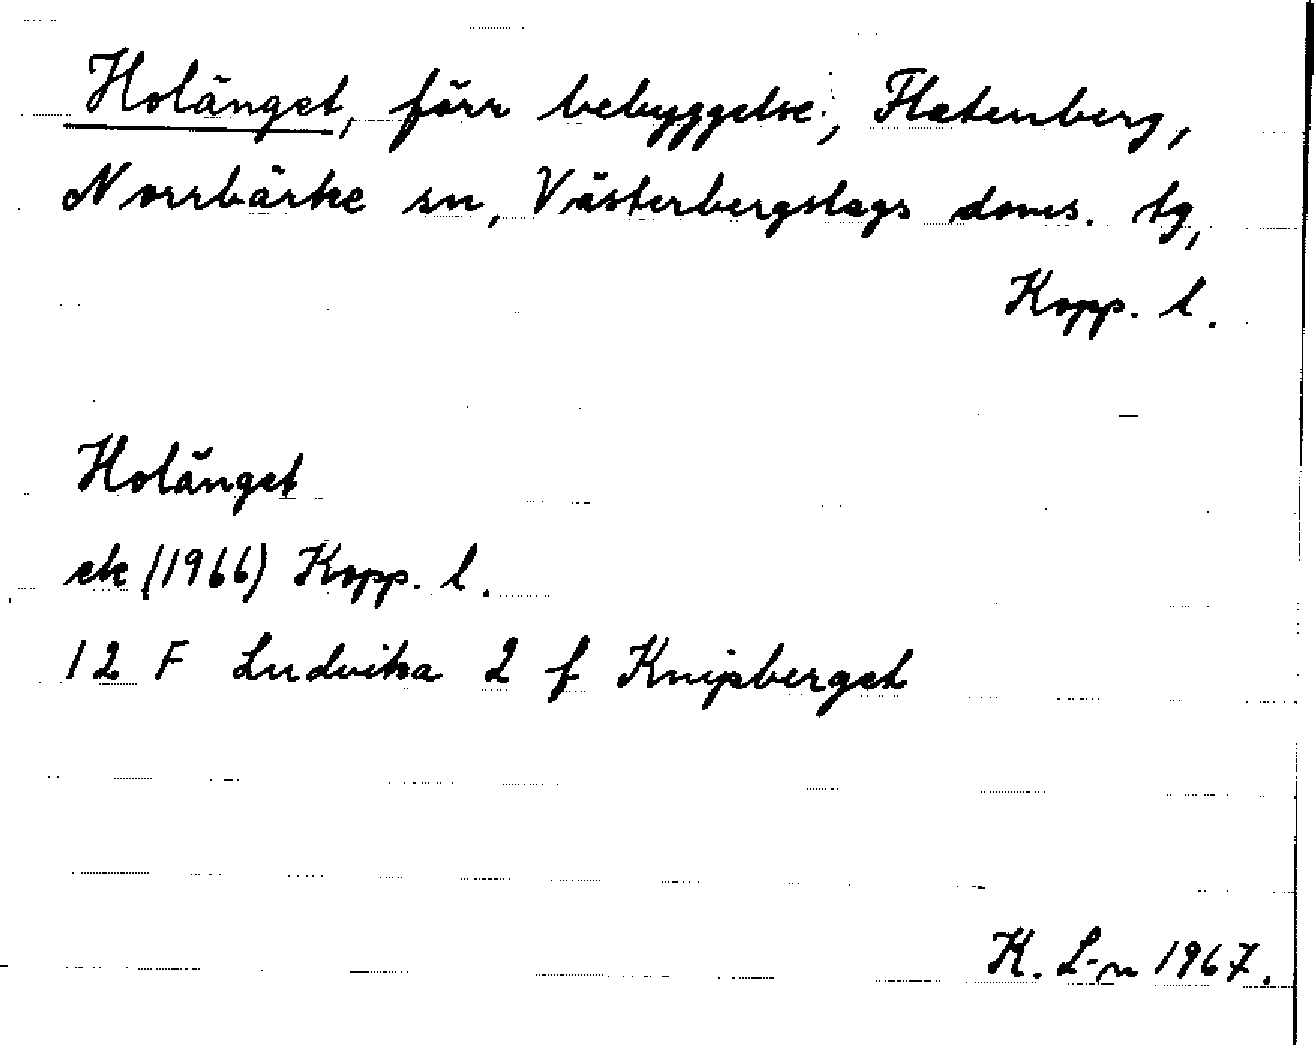 Holänget, förr bebyggelse, Flatenberg,
Norrbärke sn, Västerbergslags doms. tg,
Kopp. l.
Holänget
ek (1966) Kopp. l.
12 F Ludvika 2 f Knipberget
K. L-n 1967.